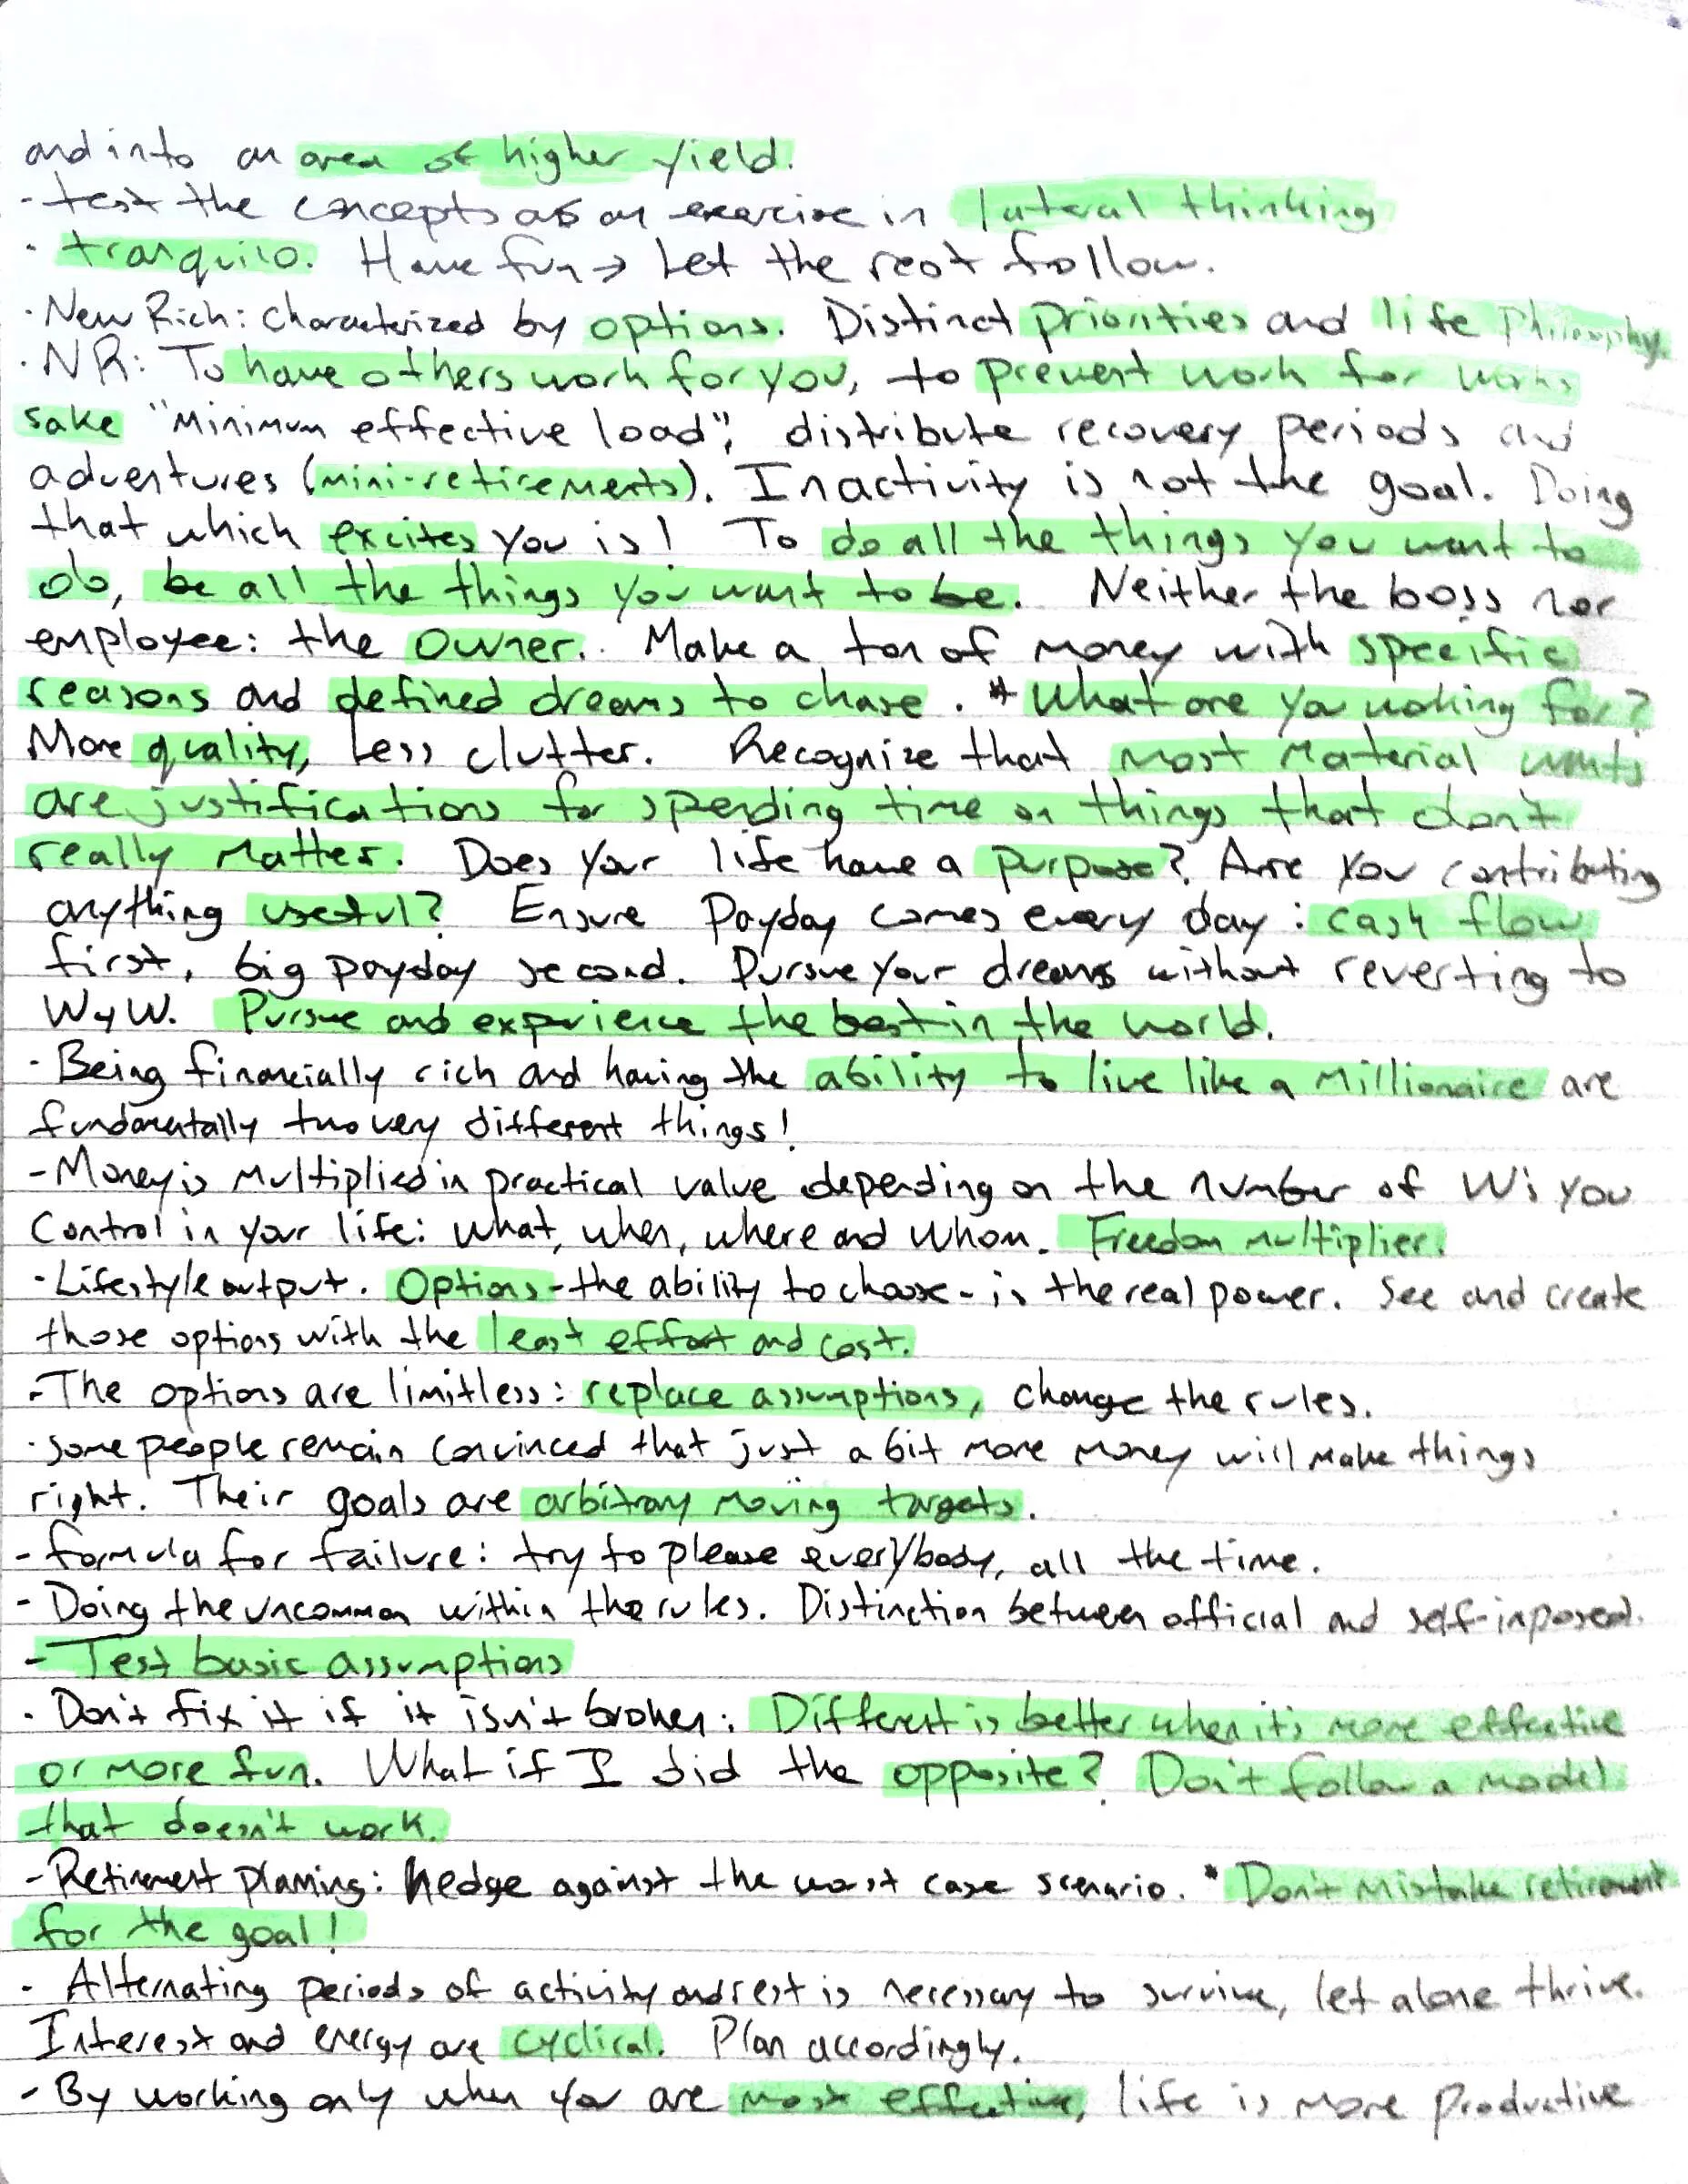 and into an area of higher yield.
- test the concepts as an exercise in lateral thinking
· tranquilo. Have fun → Let the rest follow.
· New Rich: characterized by options. Distinct priorities and life philosophy.
· NR: To have others work for you, to prevent work for works
sake "Minimum effective load", distribute recovery periods and
adventures (mini-retirements). Inactivity is not the goal. Doing
that which excites you is! To do all the things you want to
do, be all the things you want to be. Neither the boss nor
employee: the owner. Make a ton of money with specific
reasons and defined dreams to chase. * What are you working for?
More quality, Less clutter. Recognize that most material wants
are justifications for spending time on things that don't
really matter. Does your life have a purpose? Are you contributing
anything useful? Ensure Payday comes every day: cash flow
first, big payday second. Pursue your dreams without reverting to
W4W. Pursue and experience the best in the world.
· Being financially rich and having the ability to live like a Millionaire are
fundamentally two very different things!
- Money is multiplied in practical value depending on the number of W's you
control in your life: what, when, where and whom. Freedom multiplier.
· Lifestyle output. Options - the ability to choose - is the real power. See and create
those options with the least effort and cost.
- The options are limitless: replace assumptions, change the rules.
· some people remain convinced that just a bit more money will make things
right. Their goals are arbitrary moving targets.
- formula for failure: try to please everybody, all the time.
- Doing the uncommon within the rules. Distinction between official and self-imposed.
- Test basic assumptions
· Don't fix it if it isn't broken: Different is better when it's more effective
or more fun. What if I did the opposite? Don't follow a model
that doesn't work.
- Retirement planning: hedge against the worst case scenario. * Don't mistake retirement
for the goal!
- Alternating periods of activity and rest is necessary to survive, let alone thrive.
Interest and energy are cyclical. Plan accordingly.
- By working only when you are most effective, life is more productive